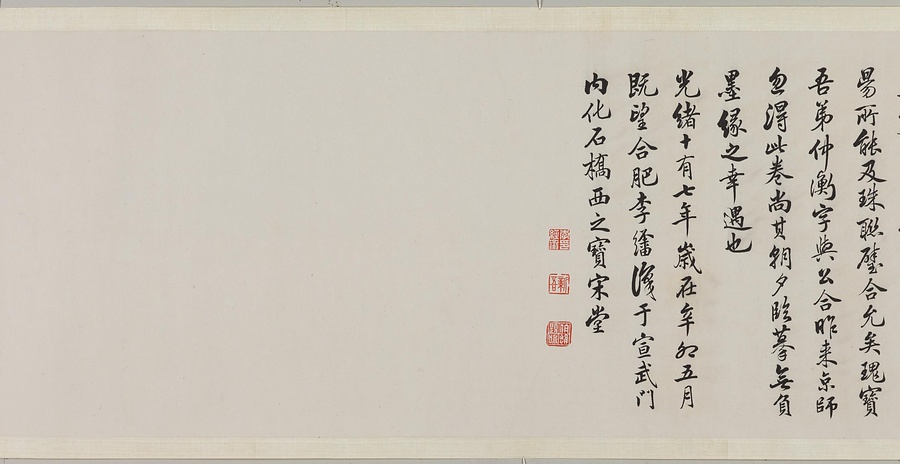 易所能及珠聯璧合允矣瑰寶
吾弟仲衡字與公合昨来京師
忽得此卷尚其朝夕臨摹無負
墨緣之幸遇也
光緒十有七年歲在辛卯五月
既望合肥李 識于宣武門
内化石橋西之寶宋堂